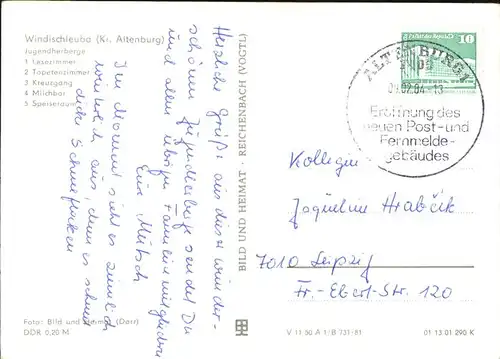 Windischleuba (Kr. Altenburg)
Jugendherberge
1 Lesezimmer
2 Tapetenzimmer
3 Kreuzgang
4 Milchbar
5 Speiseraum
Herzliche Grüße aus dieser wunder-
schönen Jugendherberge sendet Dir
und allen übrigen Familienmitgliedern
Eure
Im Moment sieht es ziemlich
winterlich aus, denn es schneit
dicke Schneeflocken
Foto: Bild und Heimat (Darr)
DDR 0,20 M
BILD UND HEIMAT · REICHENBACH (VOGTL)
10
ALTENBURG 1
7400
.02.84-13
Eröffnung des
neuen Post- und
Fernmelde-
gebäudes
Kollegin
Jaqueline Hrabčik
7010 Leipzig
Fr.-Ebert-Str. 120
V 11 50 A 1/B 731/81
01 13 01 290 K